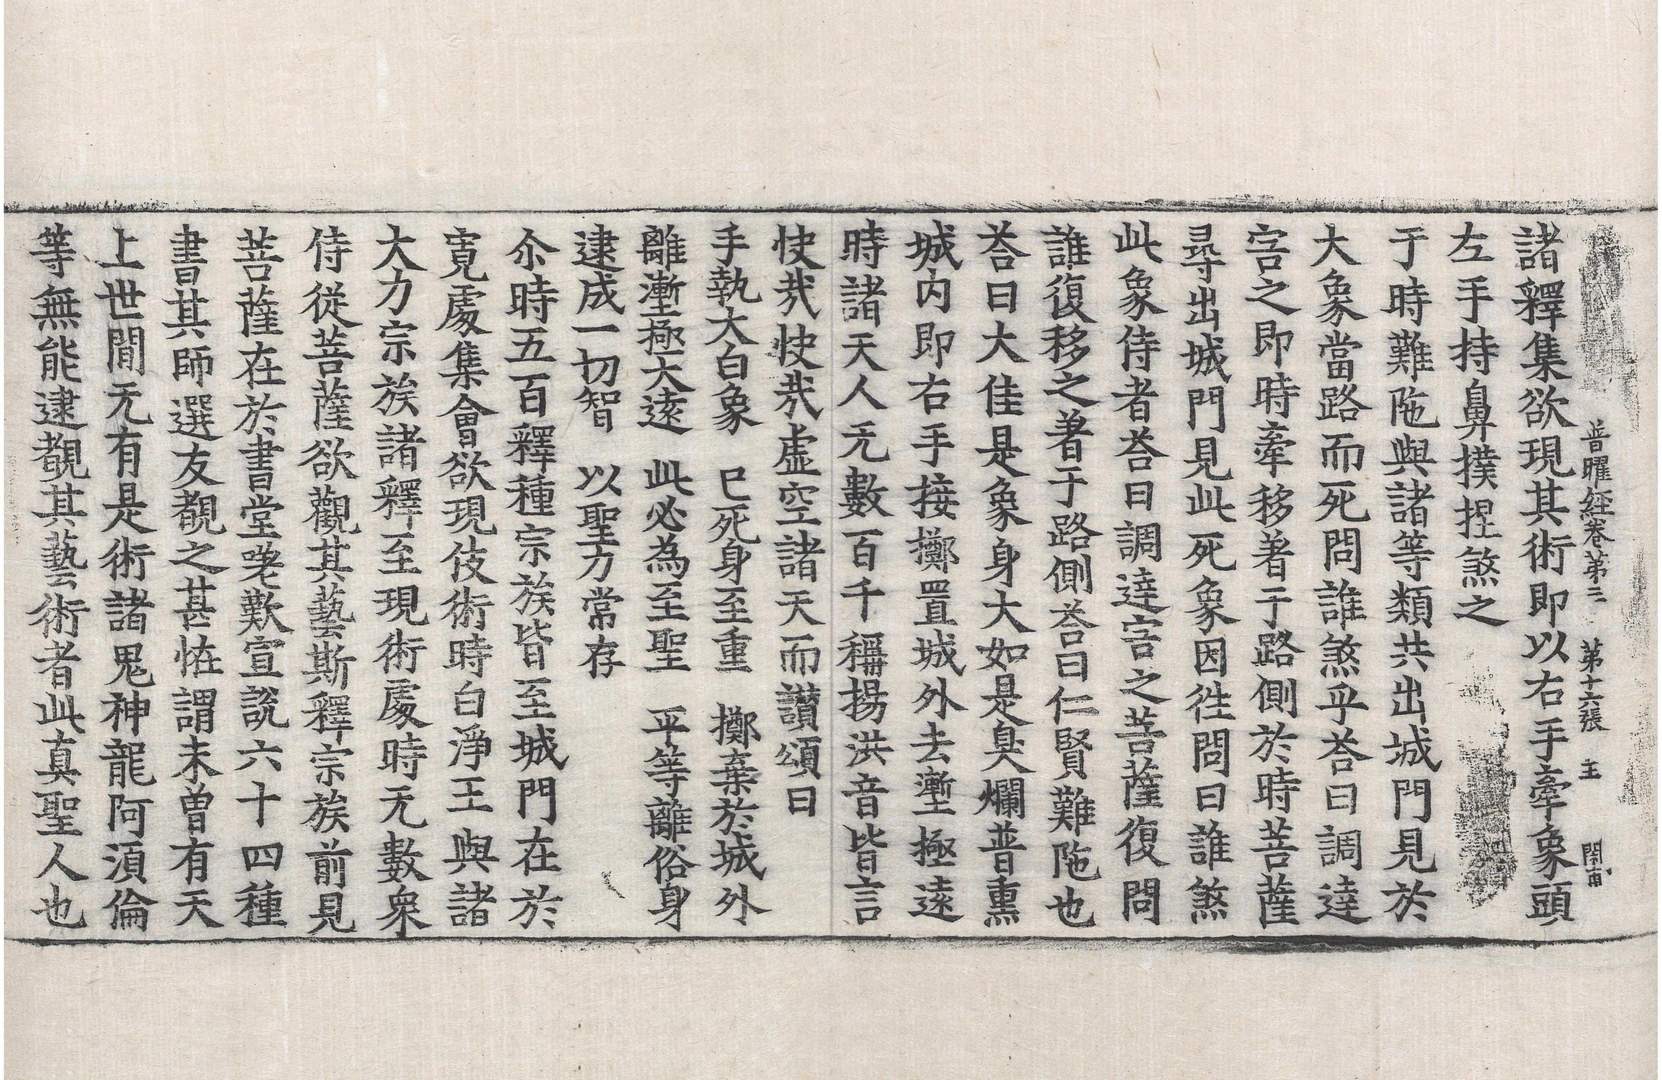 普曜經卷第三　第十六張　王
諸釋集欲現其術即以右手牽象頭
左手持鼻撲捏煞之
于時難陁與諸等類共出城門見於
大象當路而死問誰煞乎荅曰調達
害之即時牽移著于路側於時菩薩
尋出城門見此死象因徃問曰誰煞
此象侍者荅曰調達害之菩薩復問
誰復移之著于路側荅曰仁賢難陁也
荅曰大佳是象身大如是臭爛普熏
城內即右手接擲置城外去壍極遠
時諸天人无數百千稱揚洪音皆言
快㦲快㦲虛空諸天而讃頌曰
手執大白象　已死身至重　擲棄於城外
離壍極大遠　此必為至聖　平等離俗身
逮成一切智　以聖力常存
尒時五百釋種宗族皆至城門在於
寬處集會欲現伎術時白淨王與諸
大力宗族諸釋至現術處時无數衆
侍從菩薩欲觀其藝斯釋宗族前見
菩薩在於書堂嗟歎宣說六十四種
書其師選友覩之甚恠謂未曾有天
上世閒无有是術諸鬼神龍阿湏倫
等無能逮覩其藝術者此真聖人也